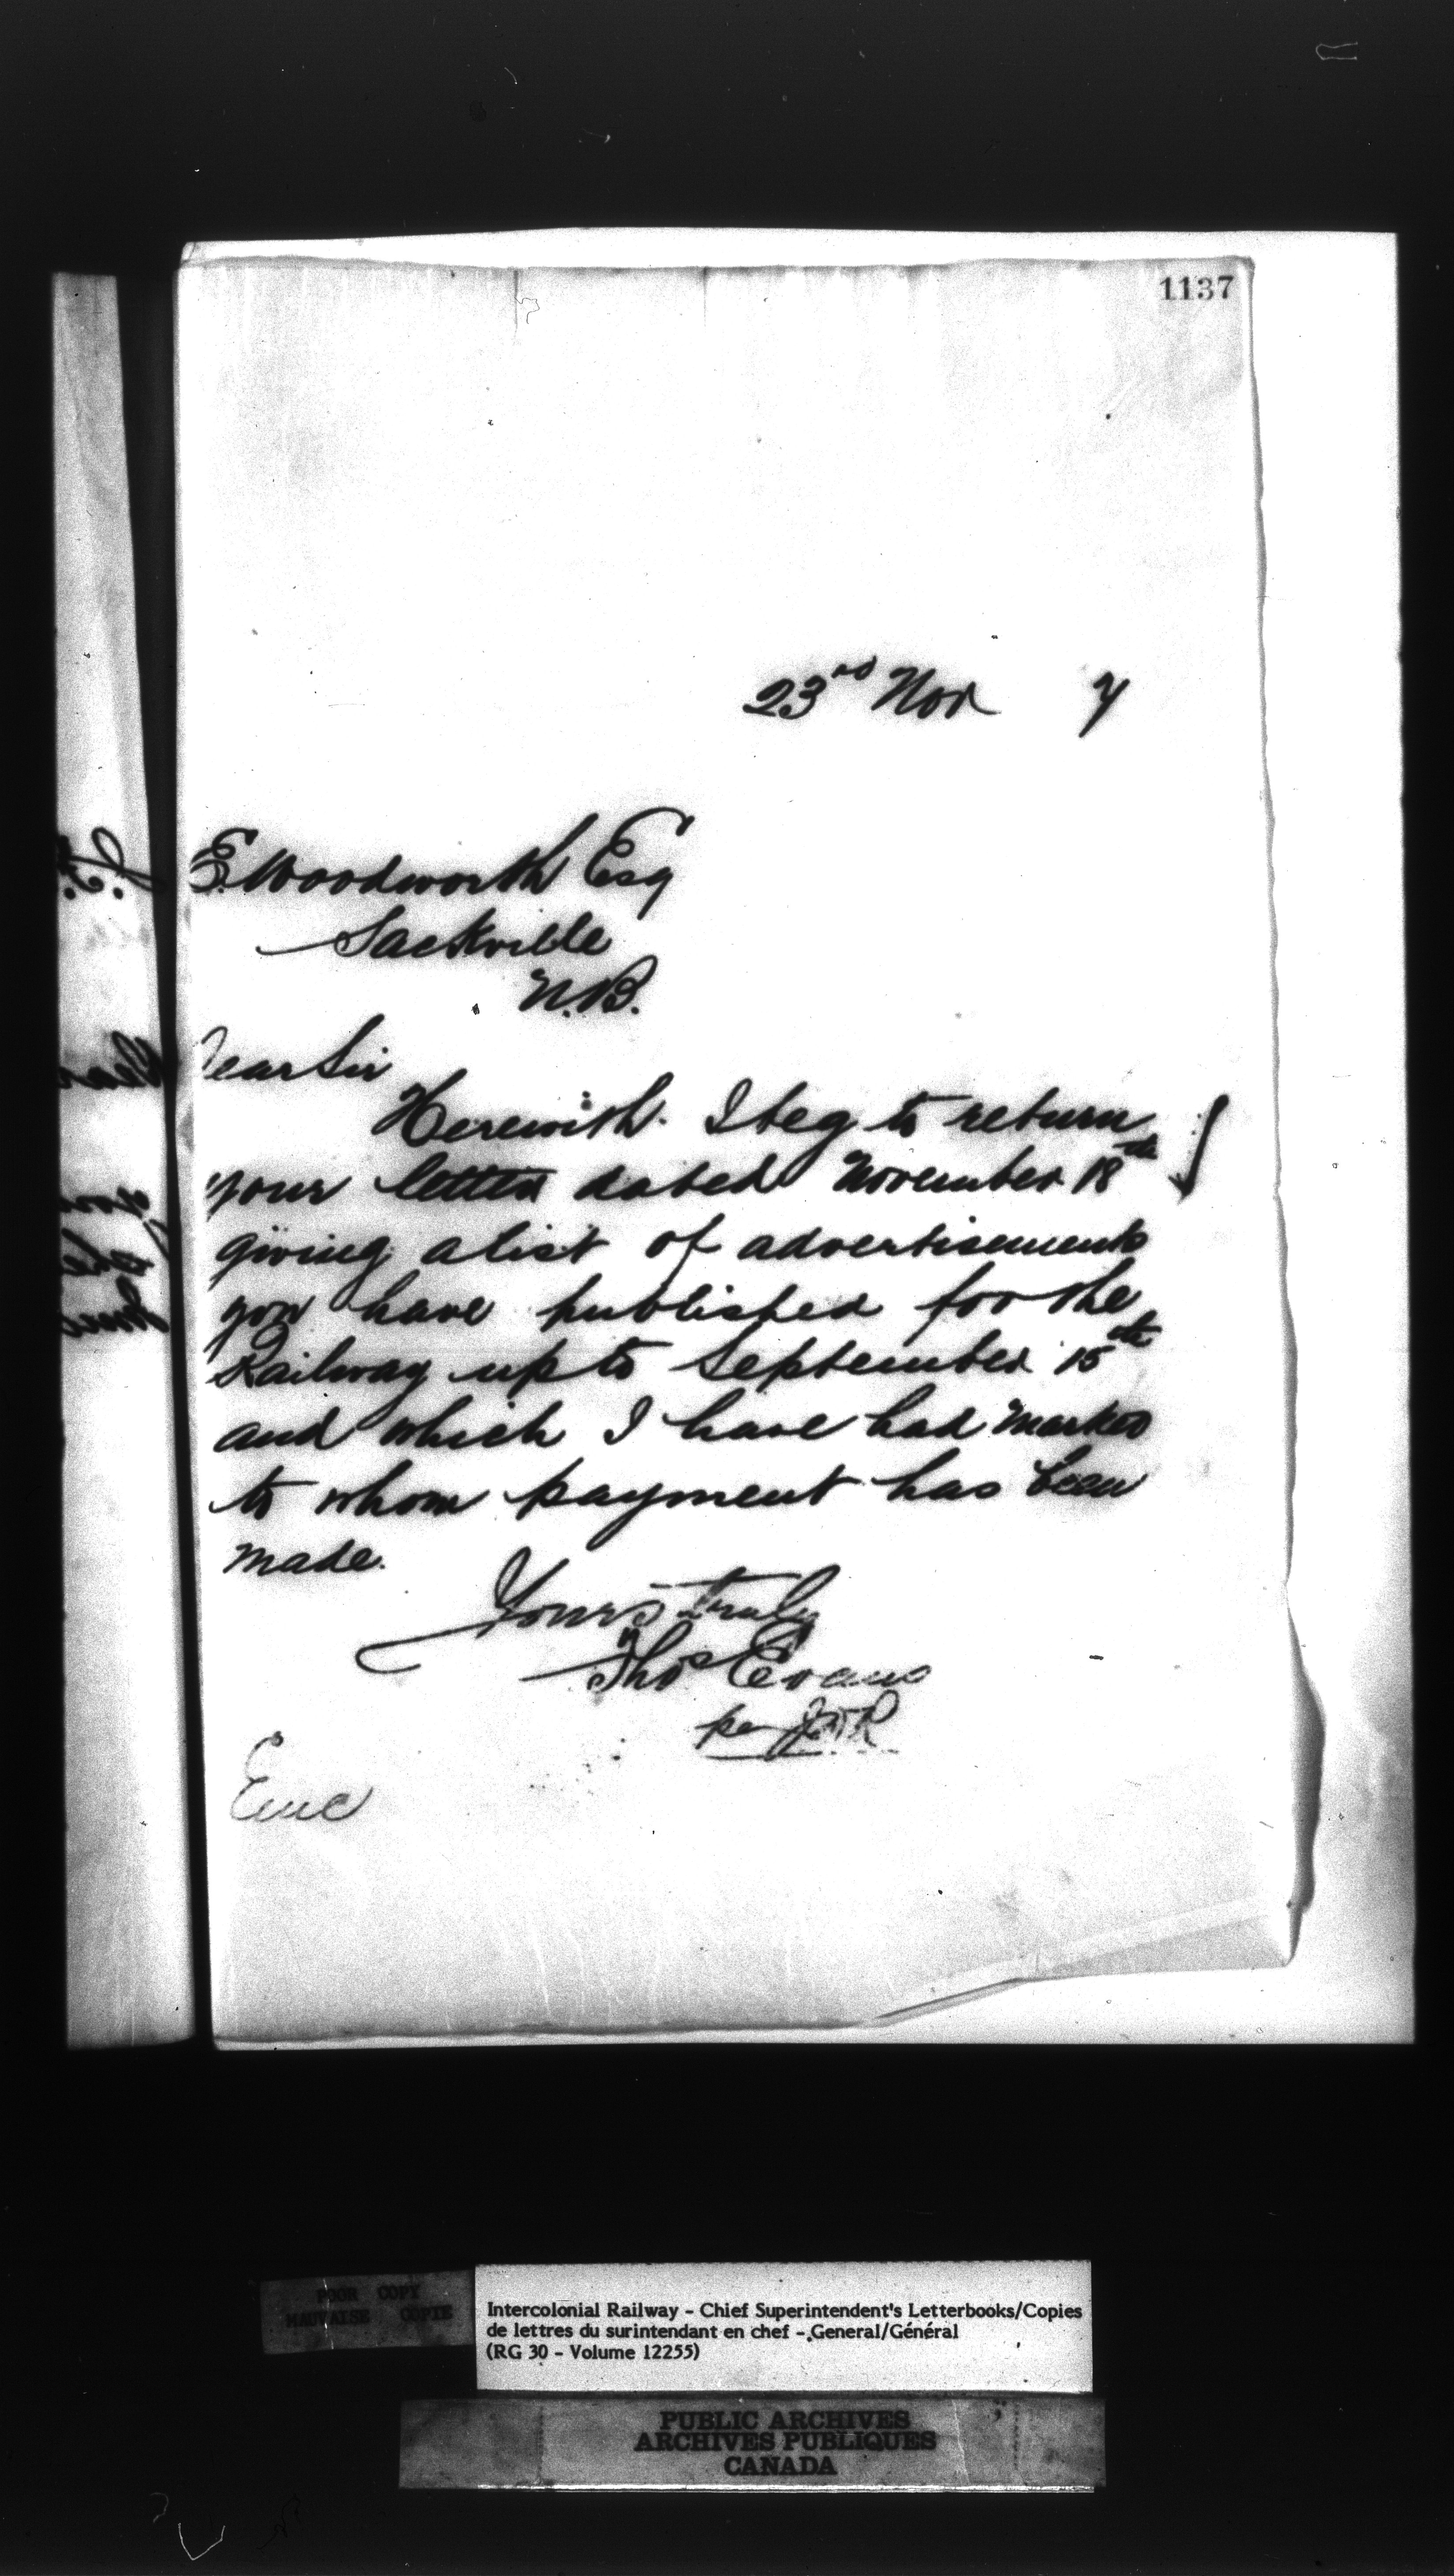 1137
23rd Nov 7
E. Woodworth Esq
Sackville
N.B.
Dear Sir
Herewith. I beg to return
your letter dated November 18th
giving a list of advertisements
you have published for the
Railway up to September 15th
and which I have had marked
to whom payment has been
made.
Yours truly
Thos Evans
per
Enc
POOR COPY
MAUVAISE COPIE
Intercolonial Railway - Chief Superintendent's Letterbooks/Copies
de lettres du surintendant en chef - General/Général
(RG 30 - Volume 12255)
PUBLIC ARCHIVES
ARCHIVES PUBLIQUES
CANADA